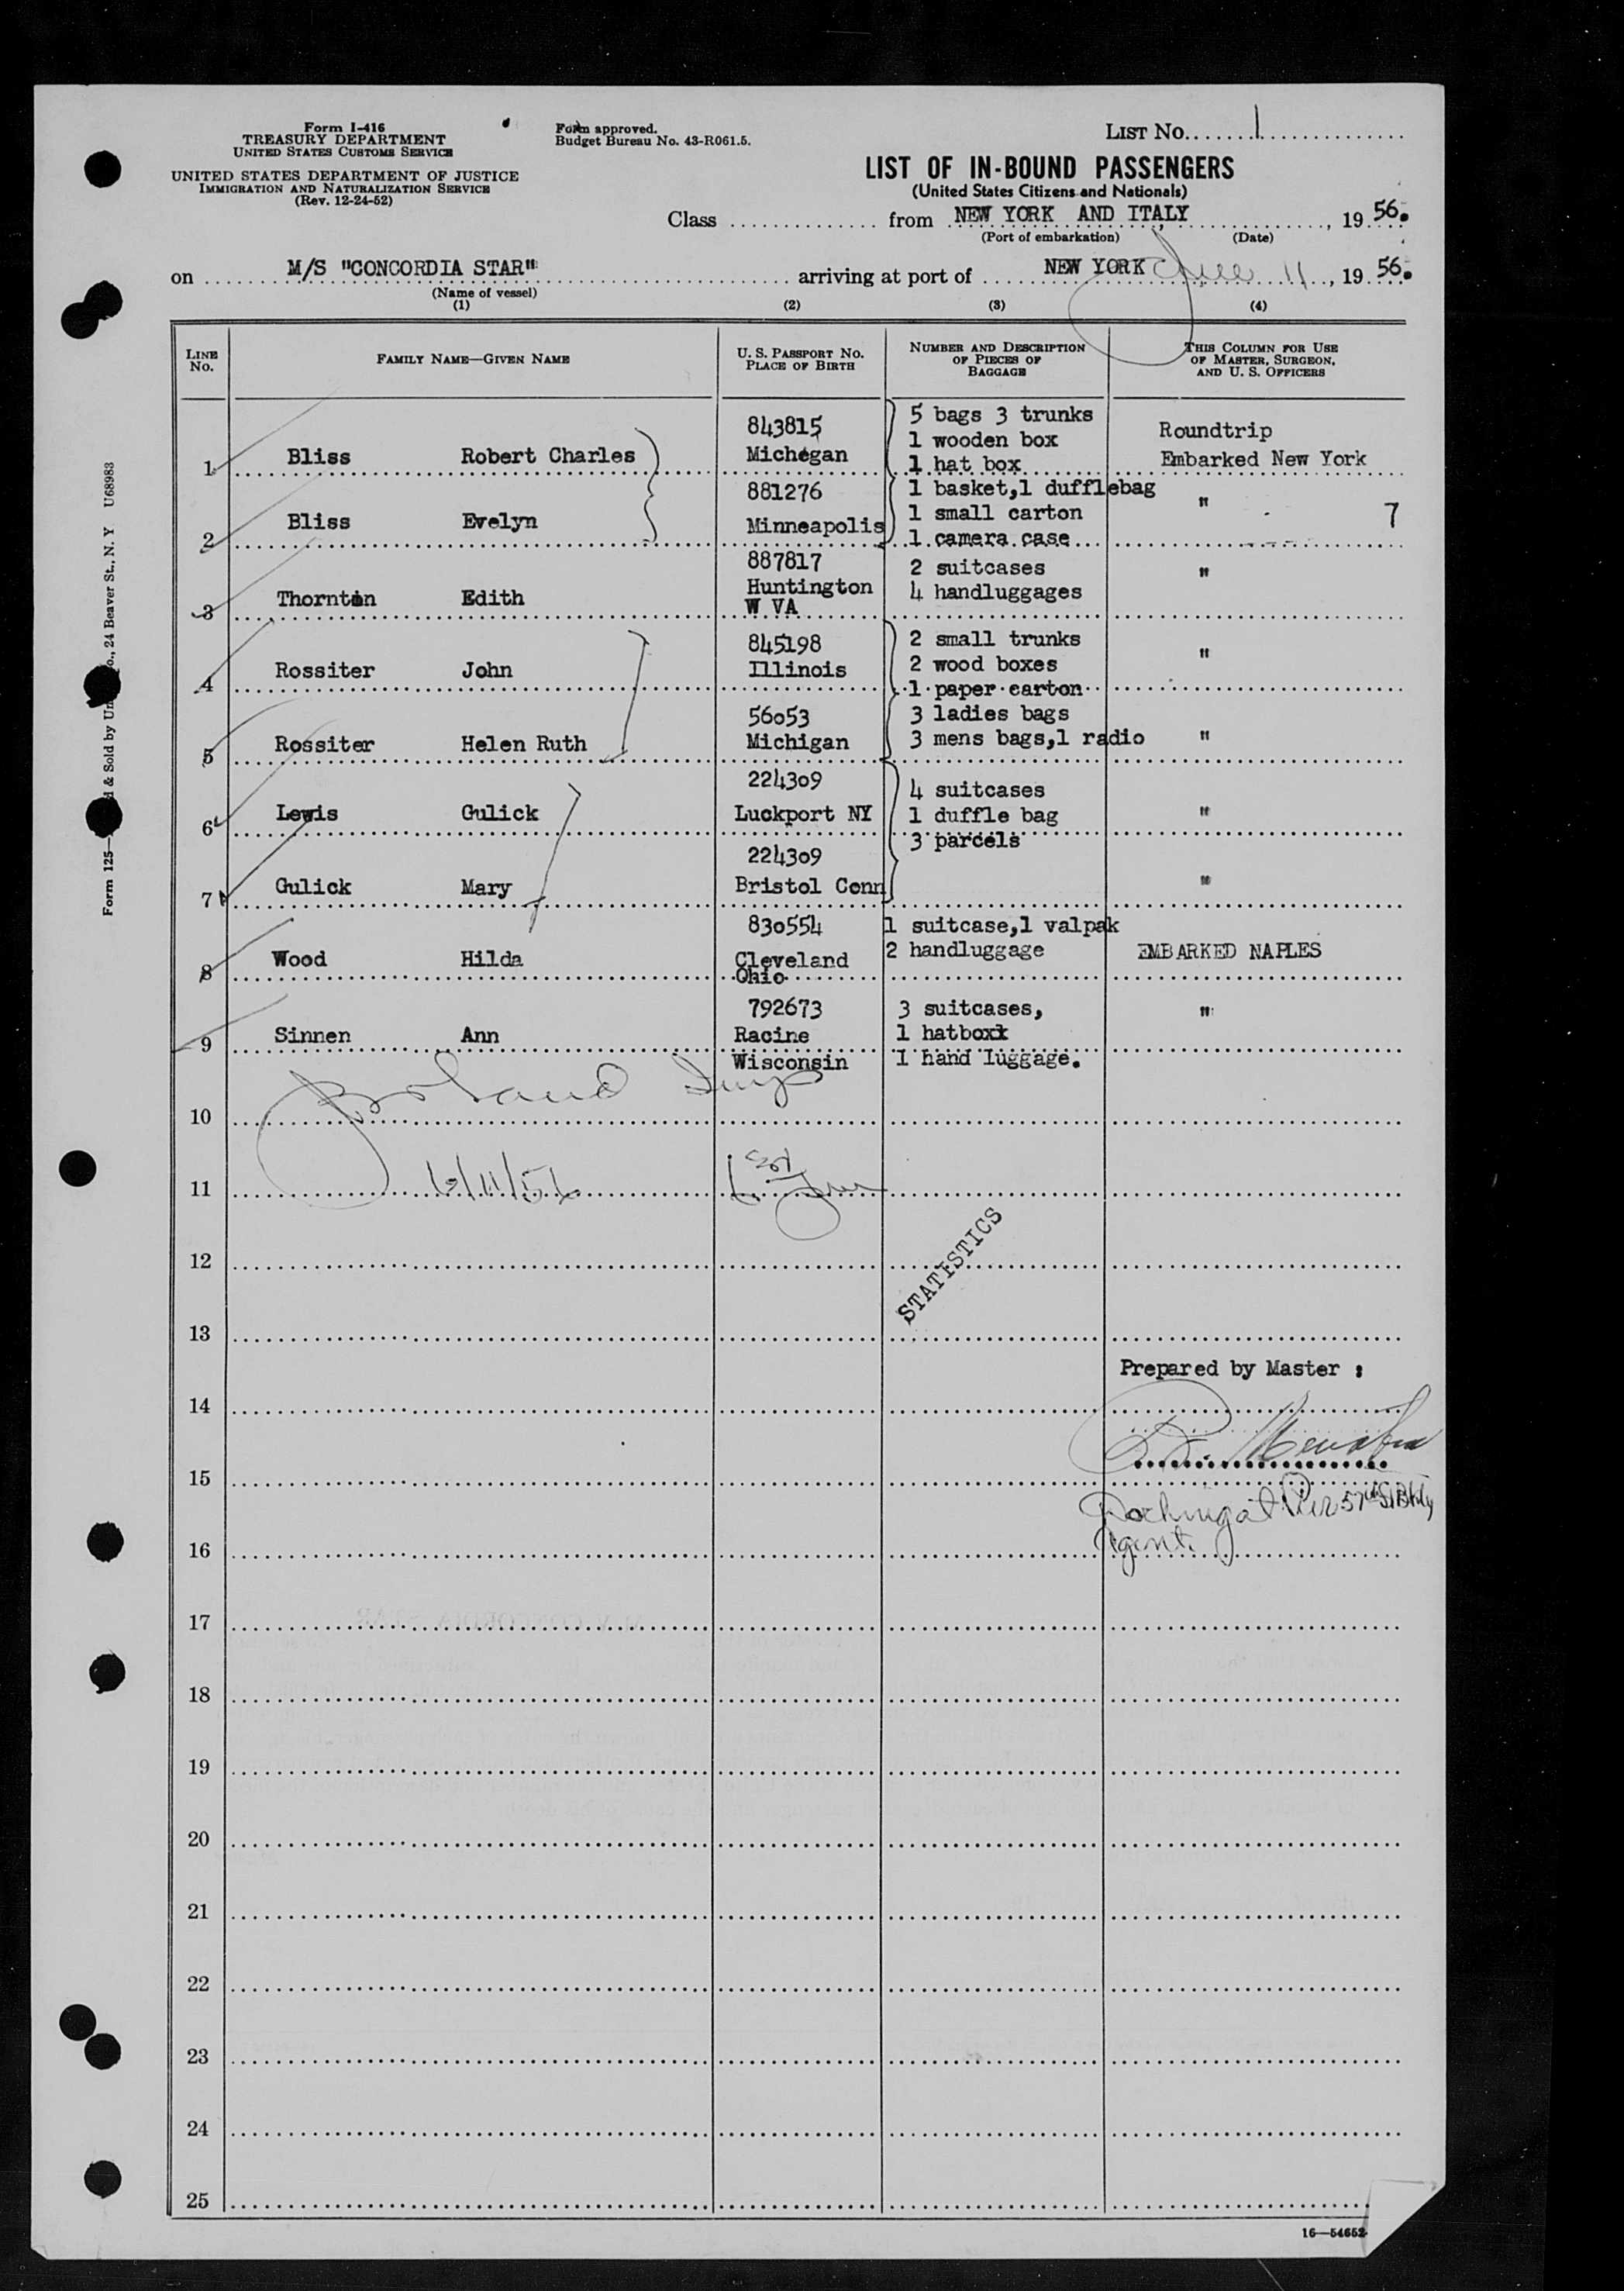 Form I-416
TREASURY DEPARTMENT
UNITED STATES CUSTOMS SERVICE
UNITED STATES DEPARTMENT OF JUSTICE
IMMIGRATION AND NATURALIZATION SERVICE
(Rev. 12-24-52)
Form approved.
Budget Bureau No. 43-R061.5.
LIST No. 1
LIST OF IN-BOUND PASSENGERS
(United States Citizens and Nationals)
Class from NEW YORK AND ITALY, 19 56.
(Port of embarkation) (Date)
on M/S "CONCORDIA STAR" arriving at port of NEW YORK June 11, 19 56.
(Name of vessel)
(1) (2) (3) (4)
LINE No. FAMILY NAME—GIVEN NAME U. S. PASSPORT No. PLACE OF BIRTH NUMBER AND DESCRIPTION OF PIECES OF BAGGAGE THIS COLUMN FOR USE OF MASTER, SURGEON, AND U. S. OFFICERS
843815 5 bags 3 trunks
1 wooden box Roundtrip
1 Bliss Robert Charles Michegan 1 hat box Embarked New York
881276 1 basket,1 dufflebag
1 small carton " 7
2 Bliss Evelyn Minneapolis 1 camera case
887817 2 suitcases "
3 Thornton Edith Huntington W VA 4 handluggages
845198 2 small trunks
4 Rossiter John Illinois 2 wood boxes "
1 paper carton
56053 3 ladies bags
5 Rossiter Helen Ruth Michigan 3 mens bags,1 radio "
224309 4 suitcases
6 Lewis Gulick Luckport NY 1 duffle bag "
224309 3 parcels
7 Gulick Mary Bristol Conn "
830554 1 suitcase,1 valpak
8 Wood Hilda Cleveland Ohio 2 handluggage EMBARKED NAPLES
792673 3 suitcases, "
9 Sinnen Ann Racine 1 hatboxx
Wisconsin 1 hand luggage.
10
11 6/11/56
12
STATISTICS
13
Prepared by Master :
14
15
Docking at Pier 57th St Bkly
Agent
16
17
18
19
20
21
22
23
24
25
16—54652
Form 125—
d & Sold by Un
o., 24 Beaver St., N. Y U68983